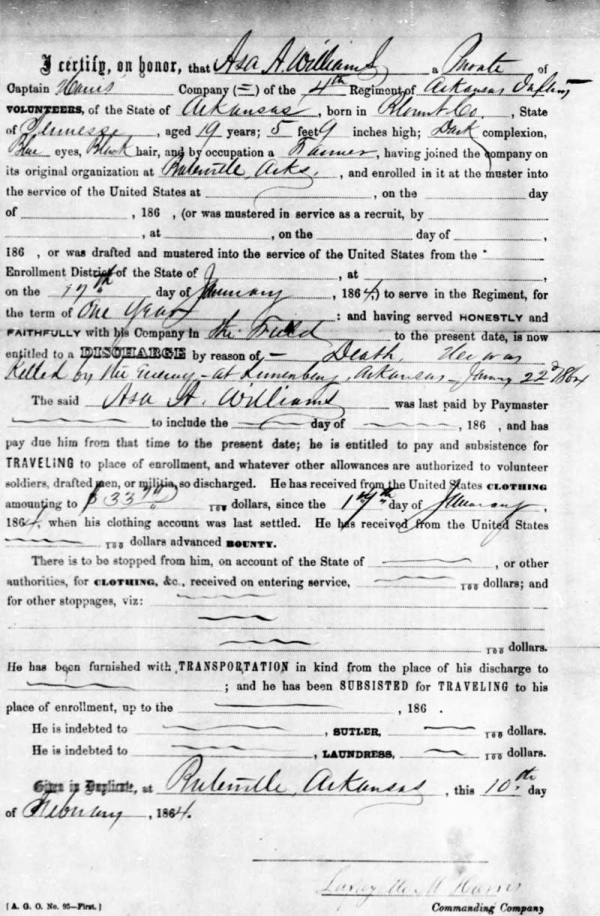 I certify, on honor, that Asa H. Williams a Private of
Captain Harris' Company (=) of the 4th Regiment of Arkansas Infty
VOLUNTEERS, of the State of Arkansas, born in Blount Co., State
of Tennessee, aged 19 years; 5 feet 9 inches high; Dark complexion,
Blue eyes, Black hair, and by occupation a Farmer, having joined the company on
its original organization at Arks., and enrolled in it at the muster into
the service of the United States at , on the day
of , 186 , (or was mustered in service as a recruit, by
, at , on the day of ,
186 , or was drafted and mustered into the service of the United States from the
Enrollment District of the State of , at
on the 17th day of January, 1864,) to serve in the Regiment, for
the term of One Year : and having served HONESTLY and
FAITHFULLY with his Company in the Field to the present date, is now
entitled to a DISCHARGE by reason of — Death, He was
Killed by the Enemy – at Lunenburg, Arkansas – Jany 22d 1864
The said Asa H. Williams was last paid by Paymaster
to include the day of , 186 , and has
pay due him from that time to the present date; he is entitled to pay and subsistence for
TRAVELING to place of enrollment, and whatever other allowances are authorized to volunteer
soldiers, drafted men, or militia, so discharged. He has received from the United States CLOTHING
amounting to $33 100 dollars, since the 17th day of January,
1864, when his clothing account was last settled. He has received from the United States
100 dollars advanced BOUNTY.
There is to be stopped from him, on account of the State of , or other
authorities, for CLOTHING, &c., received on entering service, 100 dollars; and
for other stoppages, viz:
100 dollars.
He has been furnished with TRANSPORTATION in kind from the place of his discharge to
; and he has been SUBSISTED for TRAVELING to his
place of enrollment, up to the , 186 .
He is indebted to , SUTLER, 100 dollars.
He is indebted to , LAUNDRESS, 100 dollars.
Given in Duplicate, at Arkansas, this 10th day
of February, 1864.
Lafayette M Harris
[A. G. O. No. 95—First.] Commanding Company